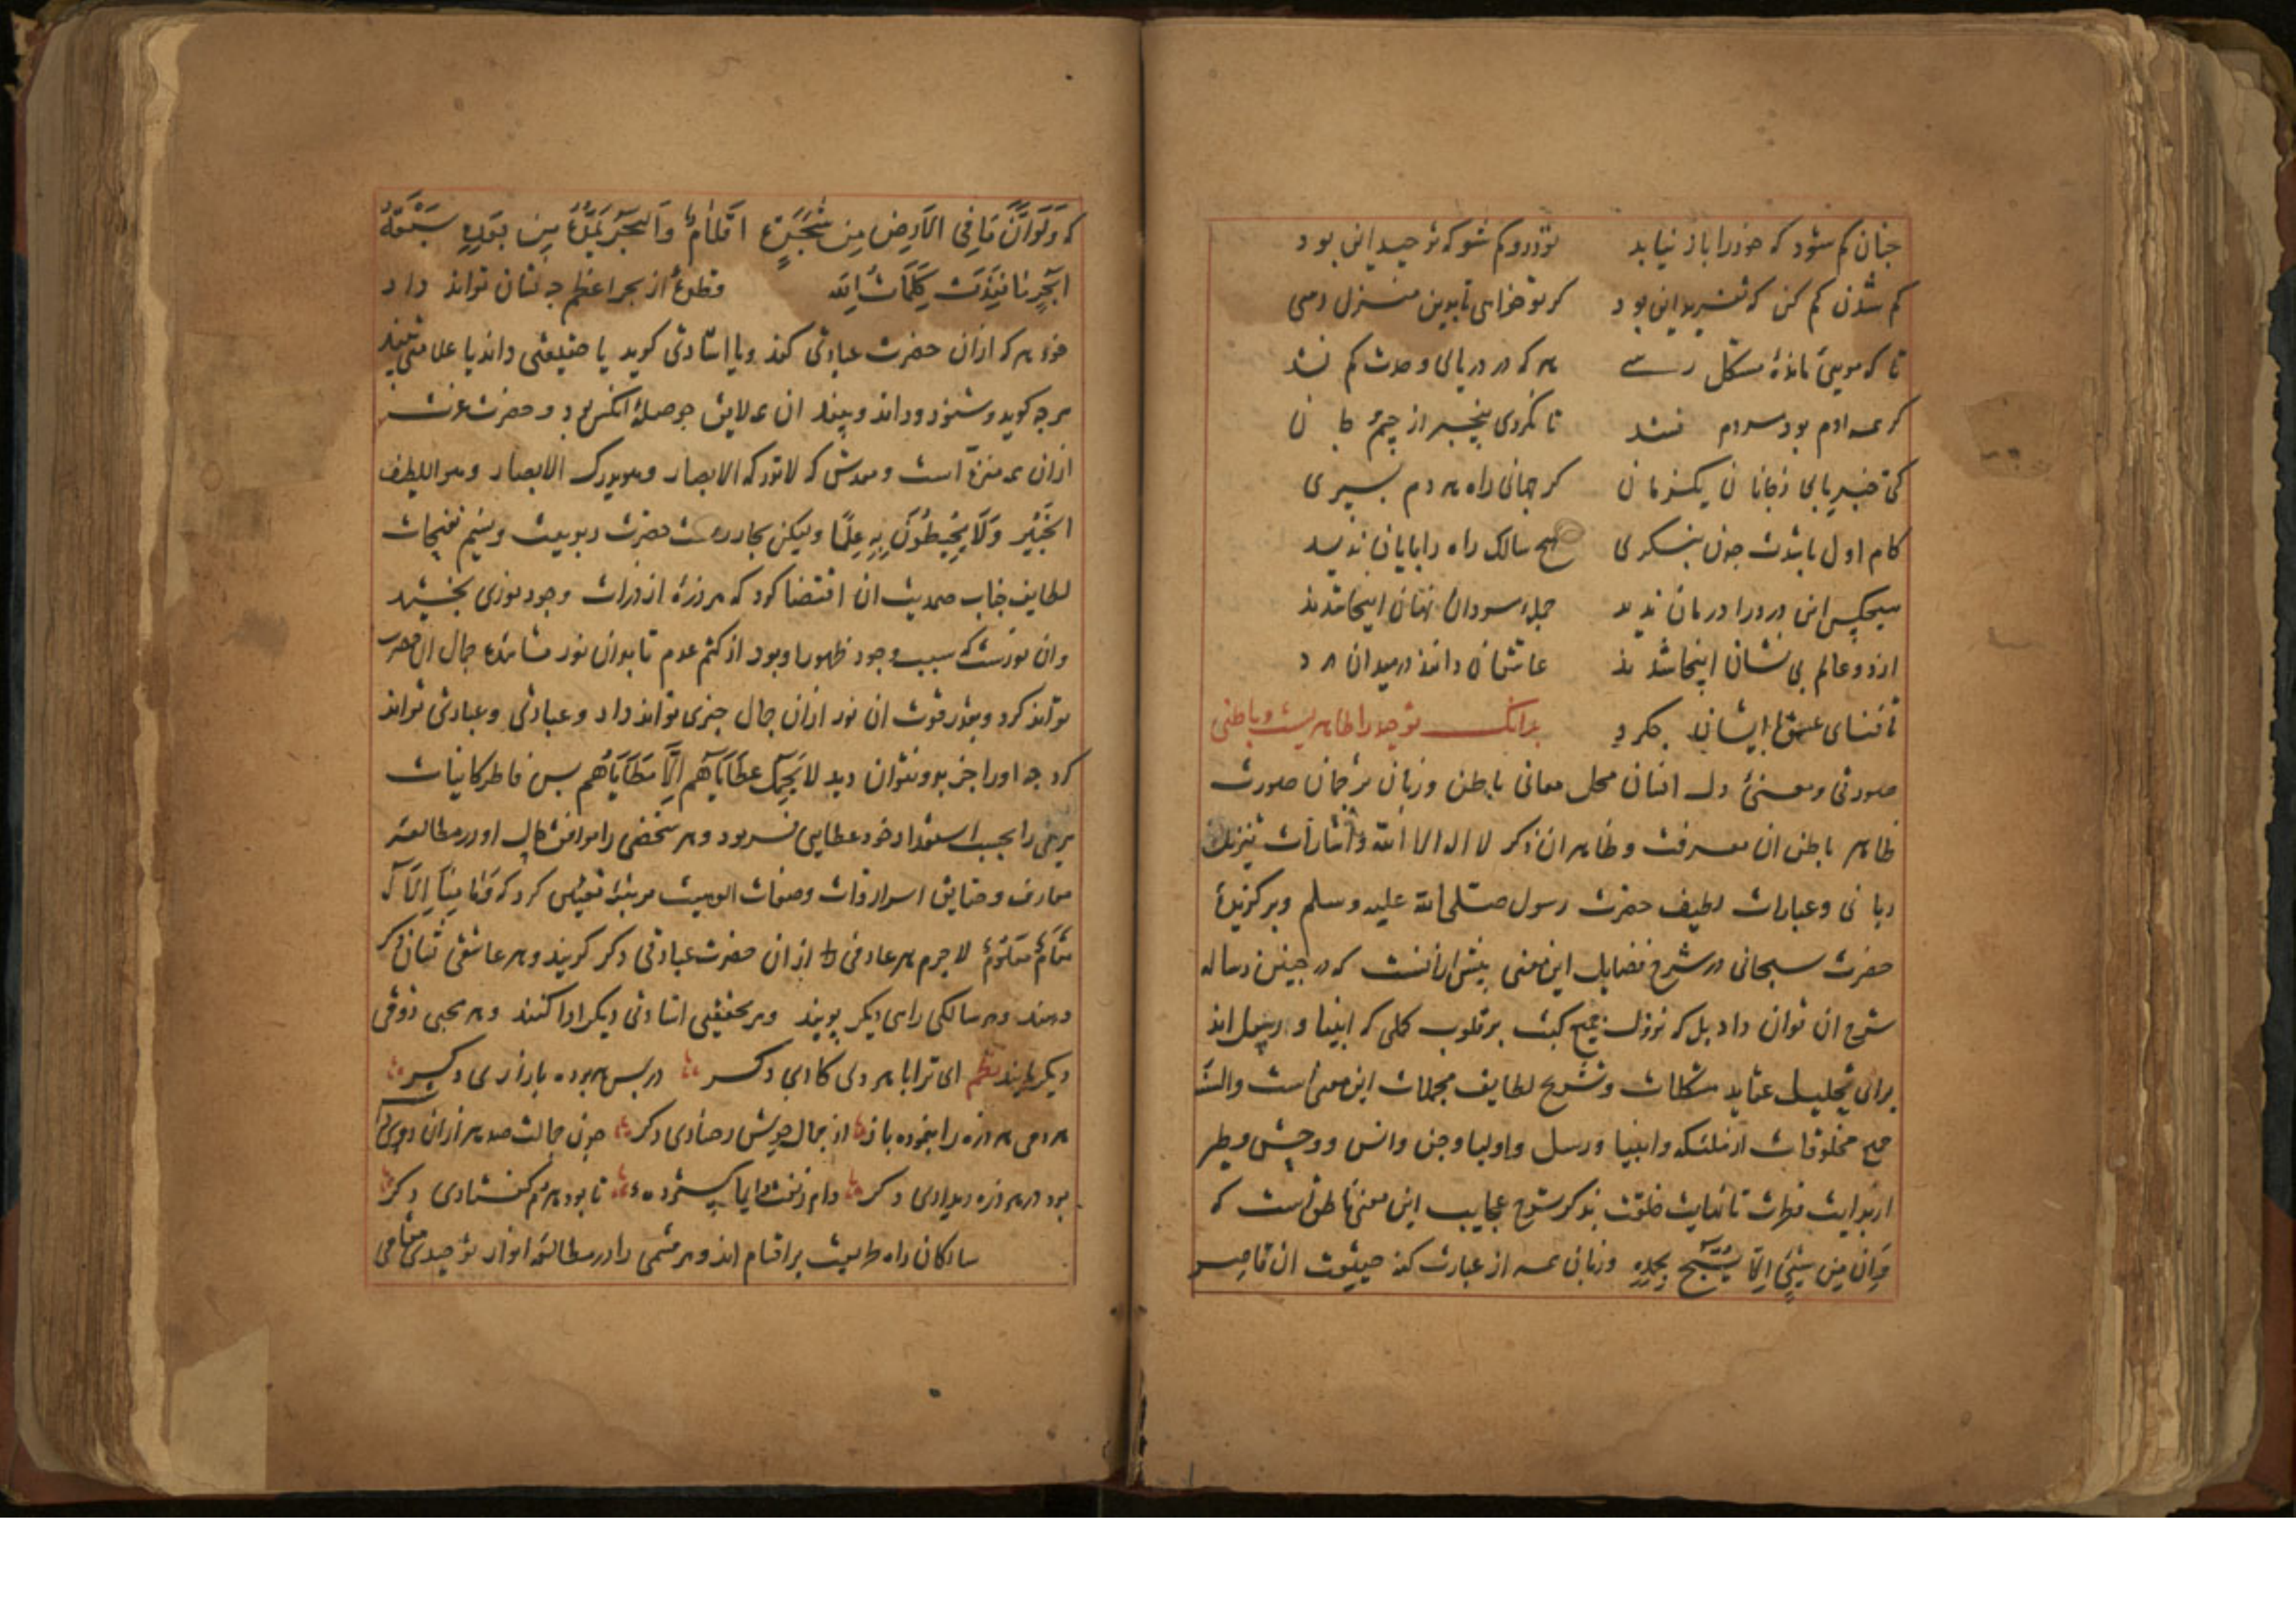 جنان کم شود که خود را باز نیابد تو درو کم شو که توحید این بود
کم شدن کم کن که تفرید این بود کر تو خواهی تا بدین منزل رسی
تا که مویی مانده مشکل رسے هر که در دریای وحدت کم نشد
کر همه ادم بود مردم نشد تا نکردی بیخبر از جسم و جان
کی خبر یابی ز جانان یکزمان کر جهانی راه هر دم بسپری
کام اول باشدت جون بنکری هیچ سالک راه را پایان ندید
هیچکس این درد را درمان ندید جمله مردان نهان اینجا شدند
از دو عالم بی نشان اینجا شدند عاشقان دانند در میدان درد
تا فنای عشق با ایشان جکرد بدانک توحید را ظاهریست و باطنی
صورتی و معنیٔ دل انسان محل معانی باطن و زبان ترجمان صورت
ظاهر باطن ان معرفت و ظاهر ان ذکر لا اله الا الله و اشارات تنزیل
ربانی و عبارات لطیف حضرت رسول صلی الله علیه وسلم و برکزیدهٔ
حضرت سبحانی در شرح فضایل این معنی بیش ازانست که در جنین رساله
شرح ان توان داد بل که نزول جمیع کتب بر قلوب کملی که انبیا و رسل اند
برای تحلیل عقاید مشکلات و تشریح لطایف مجملات این معنی است والسنه
جمیع مخلوقات از ملئکه و انبیا و رسل و اولیا و جن و انس و وحش و طیر
از بدایت فطرت تا نهایت خلقت بذکر شرح عجایب این معنی ناطق است که
وَاِن مِن شَیْئٍ اِلَّا یُسَبِّحُ بِحَمْدِهِ و زبان همه از عبارت کنه حقیقت ان قاصر
که وَلَوْ اَنَّ مَا فِی الْاَرْضِ مِن شَجَرَةٍ اَقْلَامٌ وَالبَحْرُ یَمُدُّهُ مِن بَعْدِهِ سَبْعَةُ
اَبْحُرٍ مَا نَفِدَتْ کَلِمَاتُ اللّٰه قطرهٔ از بحر اعظم جه نشان تواند داد
خود هر که ازان حضرت عبارتی کند و یا اشارتی کوید یا حقیقتی داند یا علامتی بیند
هر جه کوید و شنود و داند و بیند ان همه لایق حوصلهٔ انکس بود و حضرت عزت
ازان همه منزه است و مقدس که لا تدرکه الابصار و هو یدرک الابصار و هو اللطیف
الخَبِیر وَلَا یُحِیطُونَ بِهِ عِلْمًا ولیکن بحار رحمت حضرت ربوبیت و نسیم نفحات
لطایف جناب صمدیت ان اقتضا کرد که هر ذرهٔ از ذرات وجود نوری بخشید
وان نوریست که سبب وجود ظهور او بود از کتم عدم تا بدان نور مشاهدهٔ جمال ان حضرت
تواند کرد و بقدر قوت ان نور ازان جمال خبری تواند داد و عبادتی و عبارتی تواند
کرد جه او را جز بدو نتوان دید لا یَحْمِلُ عَطَایَاهُم اِلَّا مَطَایَاهُم بس فاطر کاینات
هر یکی را بحسب استعداد خود عطایی فرمود و هر شخصی را موافق حال او در مطالعه
معارف و حقایق اسرار ذات و صفات الوهیت مرتبهٔ تعیین کرد که وَمَا مِنَّا اِلَّا لَهُ
مَقَامٌ مَعْلُومٌ لاجرم هر عارفی را ازان حضرت عبارتی دکر کویند و هر عاشقی نشان دکر
دهند و هر سالکی راهی دیکر بویند و هر محققی اشارتی دیکر ادا کنند و هر محبی ذوقی
دیکر یابند نظم ای ترا با هر دلی کاری دکر در بس هر برده بازاری دکر
هر دمی هر ذره را بنموده باز از جمال خویش رخساری دکر جون جمالت صد هزاران روی داشت
بود در هر ذره دیداری دکر تا بود هر دم کرفتاری دکر
سالکان راه طریقت بر اقسام اند و هر قسمی را در مطالعه انوار توحیدی مقامی